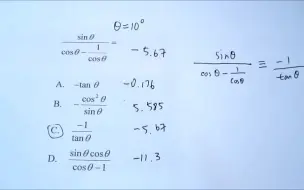 θ = 10°
sinθ / (cosθ − 1/cosθ) = −5.67
A. −tan θ −0.176
B. −cos²θ / sinθ 5.585
C. −1 / tanθ −5.67
D. sinθ cosθ / (cosθ − 1) −11.3
sinθ / (cosθ − 1/cosθ) ≡ −1 / tanθ